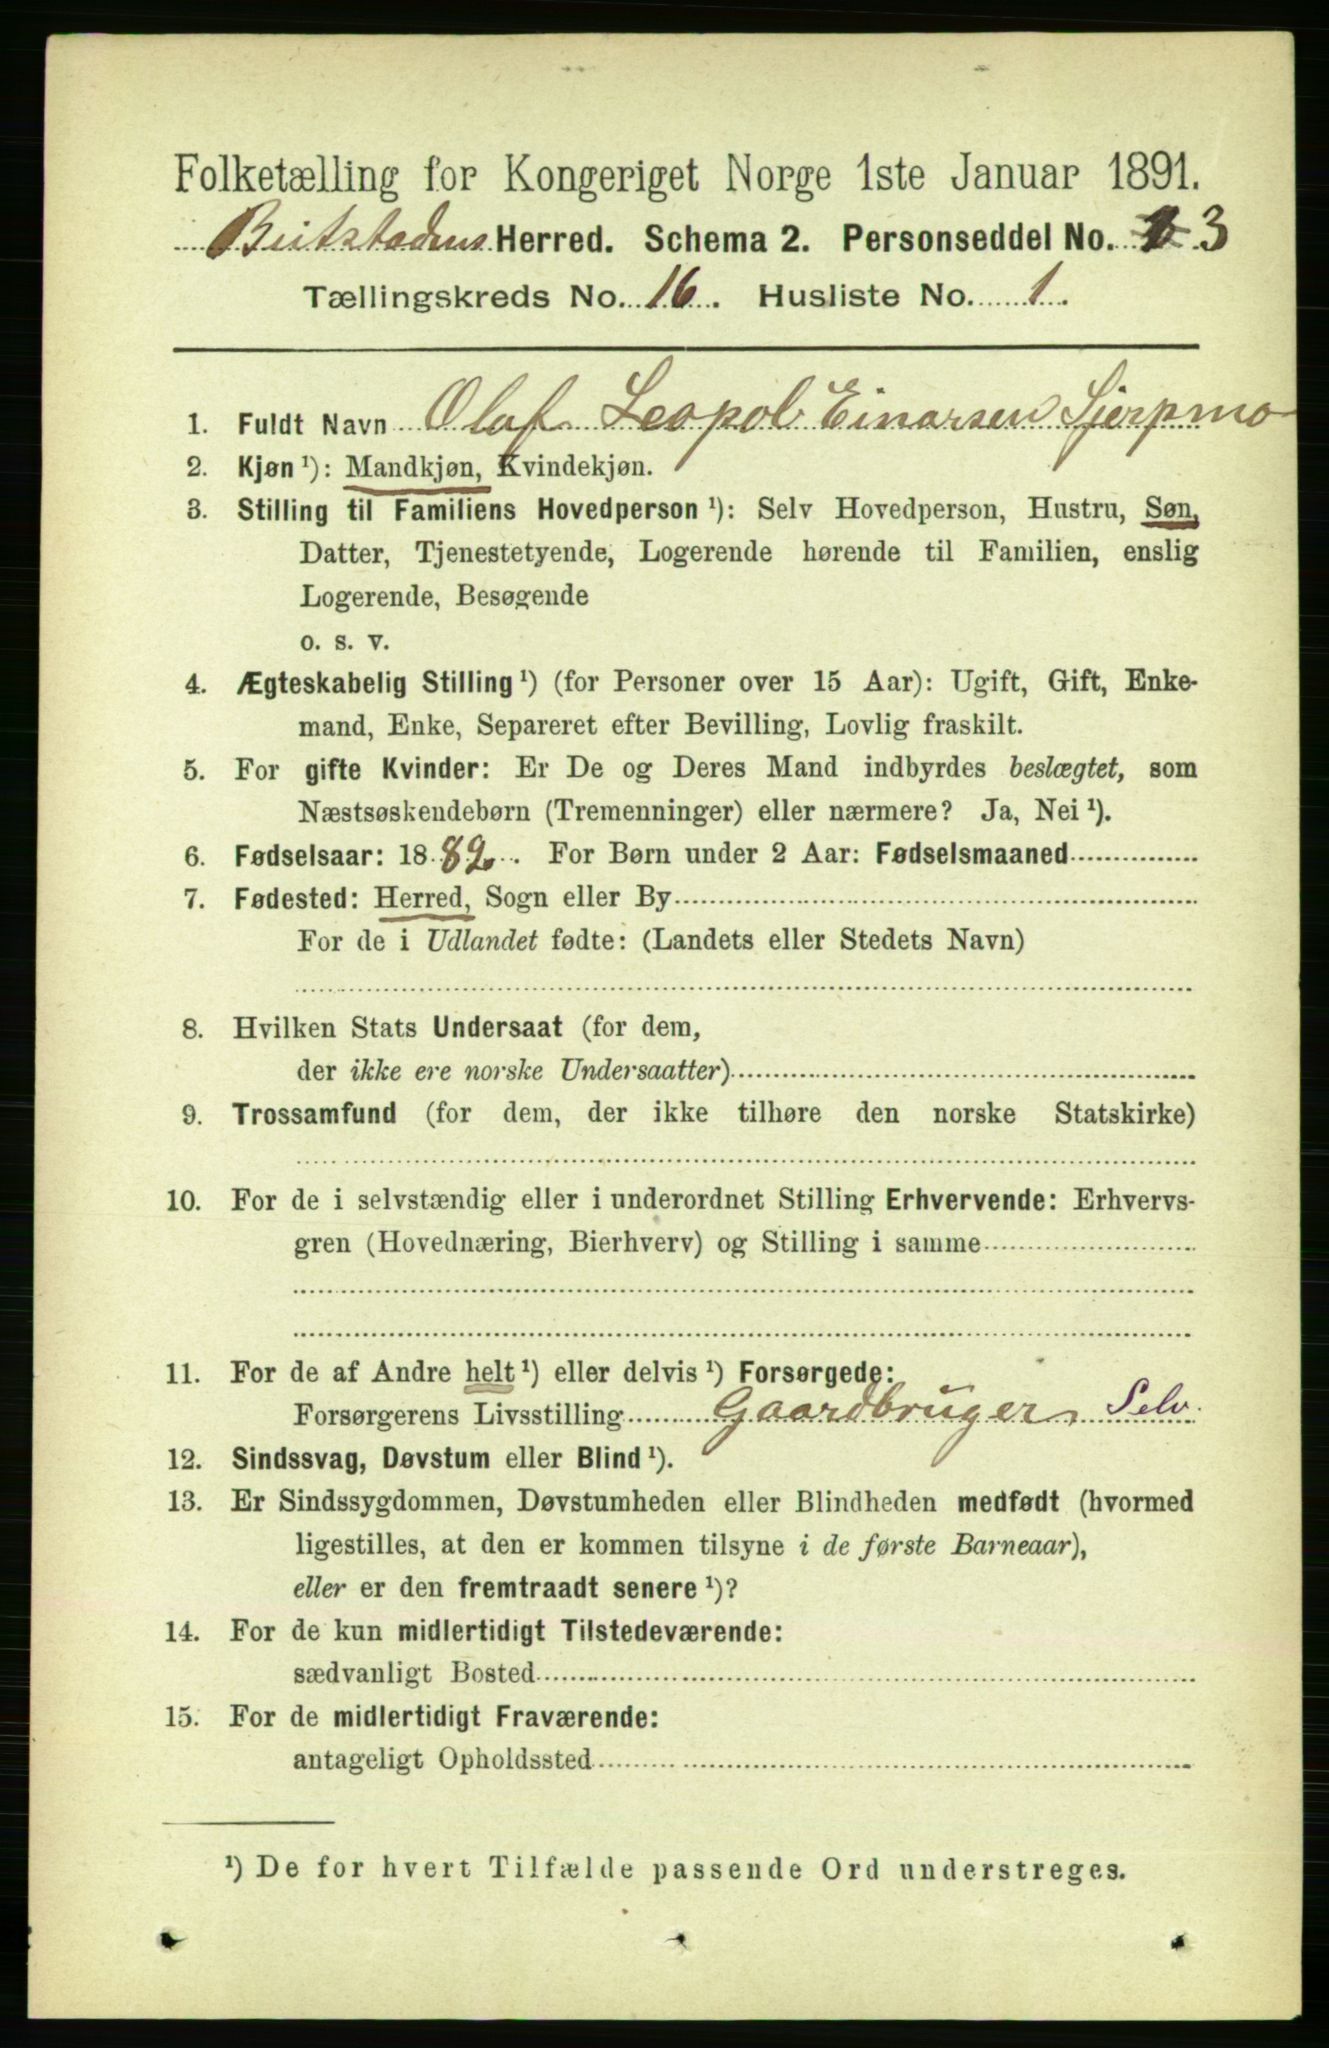 Folketælling for Kongeriget Norge 1ste Januar 1891.
Beitstadens Herred. Schema 2. Personseddel No. 3
Tællingskreds No. 16. Husliste No. 1.
1. Fuldt Navn Olaf Leopol Einarsen Sjerpmo
2. Kjøn ¹): Mandkjøn, Kvindekjøn.
3. Stilling til Familiens Hovedperson ¹): Selv Hovedperson, Hustru, Søn,
Datter, Tjenestetyende, Logerende hørende til Familien, enslig
Logerende, Besøgende
o. s. v.
4. Ægteskabelig Stilling ¹) (for Personer over 15 Aar): Ugift, Gift, Enke-
mand, Enke, Separeret efter Bevilling, Lovlig fraskilt.
5. For gifte Kvinder: Er De og Deres Mand indbyrdes beslægtet, som
Næstsøskendebørn (Tremenninger) eller nærmere? Ja, Nei ¹).
6. Fødselsaar: 1882. For Børn under 2 Aar: Fødselsmaaned
7. Fødested: Herred, Sogn eller By
For de i Udlandet fødte: (Landets eller Stedets Navn)
8. Hvilken Stats Undersaat (for dem,
der ikke ere norske Undersaatter)
9. Trossamfund (for dem, der ikke tilhøre den norske Statskirke)
10. For de i selvstændig eller i underordnet Stilling Erhvervende: Erhvervs-
gren (Hovednæring, Bierhverv) og Stilling i samme
11. For de af Andre helt ¹) eller delvis ¹) Forsørgede:
Forsørgerens Livsstilling Gaardbruger, Selv.
12. Sindssvag, Døvstum eller Blind ¹).
13. Er Sindssygdommen, Døvstumheden eller Blindheden medfødt (hvormed
ligestilles, at den er kommen tilsyne i de første Barneaar),
eller er den fremtraadt senere ¹)?
14. For de kun midlertidigt Tilstedeværende:
sædvanligt Bosted
15. For de midlertidigt Fraværende:
antageligt Opholdssted
¹) De for hvert Tilfælde passende Ord understreges.